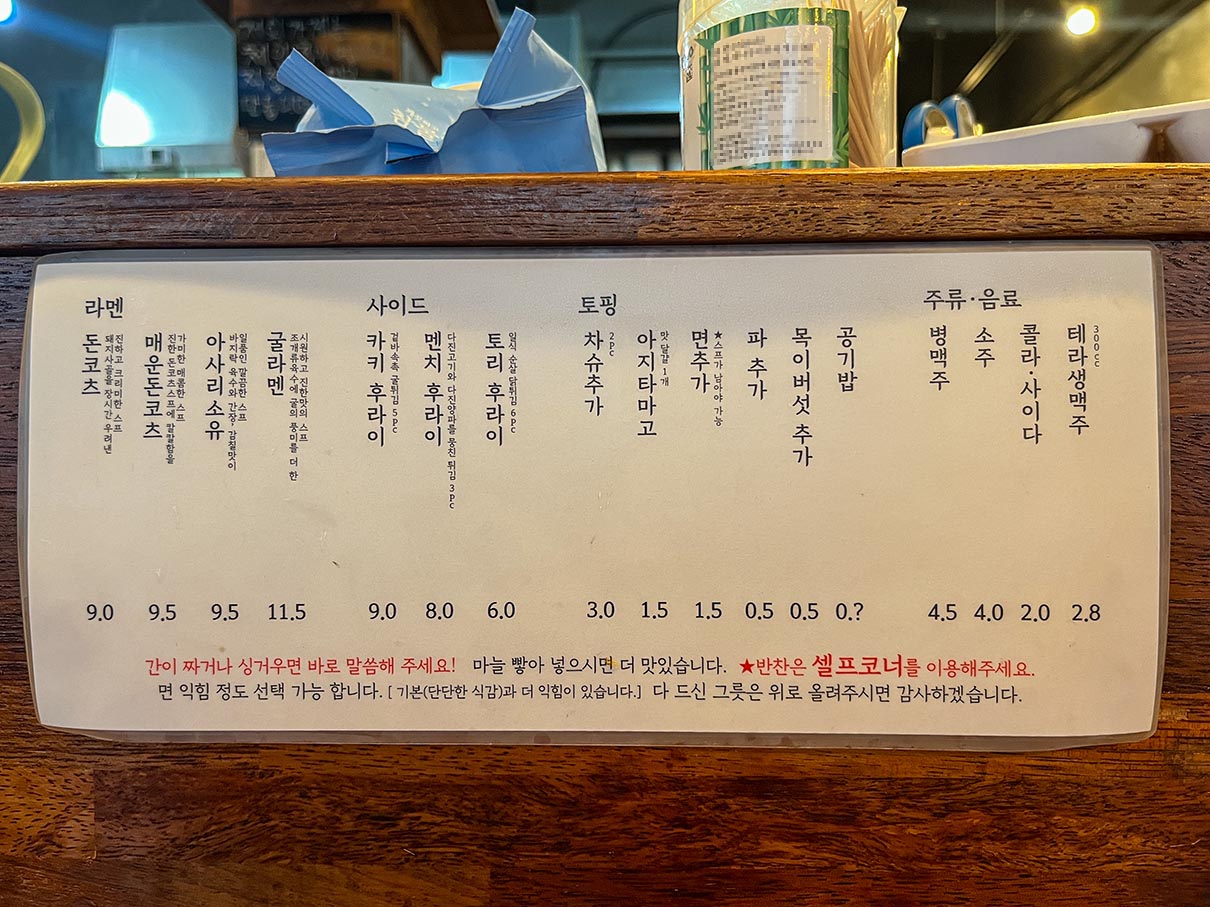 라멘
돈코츠
진하고 크리미한 스프
돼지사골을 장시간 우려낸
9.0
매운돈코츠
가미한 매콤한 스프
진한 돈코츠스프에 칼칼함을
9.5
아사리소유
일품인 깔끔한 스프
바지락 육수와 간장, 감칠맛이
9.5
굴라멘
시원하고 진한맛의 스프
조개류육수에 굴의 풍미를 더 한
11.5
사이드
카키 후라이
겉바속촉 굴튀김 5Pc
9.0
멘치 후라이
다진고기와 다진양파를 뭉친 튀김 3Pc
8.0
토리 후라이
일식 순살 닭튀김 6Pc
6.0
토핑
차슈추가
2Pc
3.0
아지타마고
맛 달걀 1개
1.5
면추가
★스프가 남아야 가능
1.5
파 추가
0.5
목이버섯 추가
0.5
공기밥
0.?
주류·음료
병맥주
4.5
소주
4.0
콜라·사이다
2.0
테라생맥주
300cc
2.8
간이 짜거나 싱거우면 바로 말씀해 주세요! 마늘 빻아 넣으시면 더 맛있습니다. ★반찬은 셀프코너를 이용해주세요.
면 익힘 정도 선택 가능 합니다. [ 기본(단단한 식감)과 더 익힘이 있습니다.] 다 드신 그릇은 위로 올려주시면 감사하겠습니다.